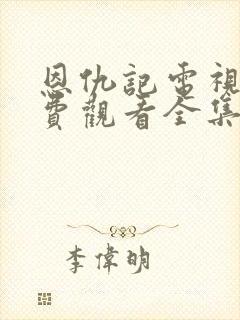 恩仇記電視
費觀看全集
李偉明